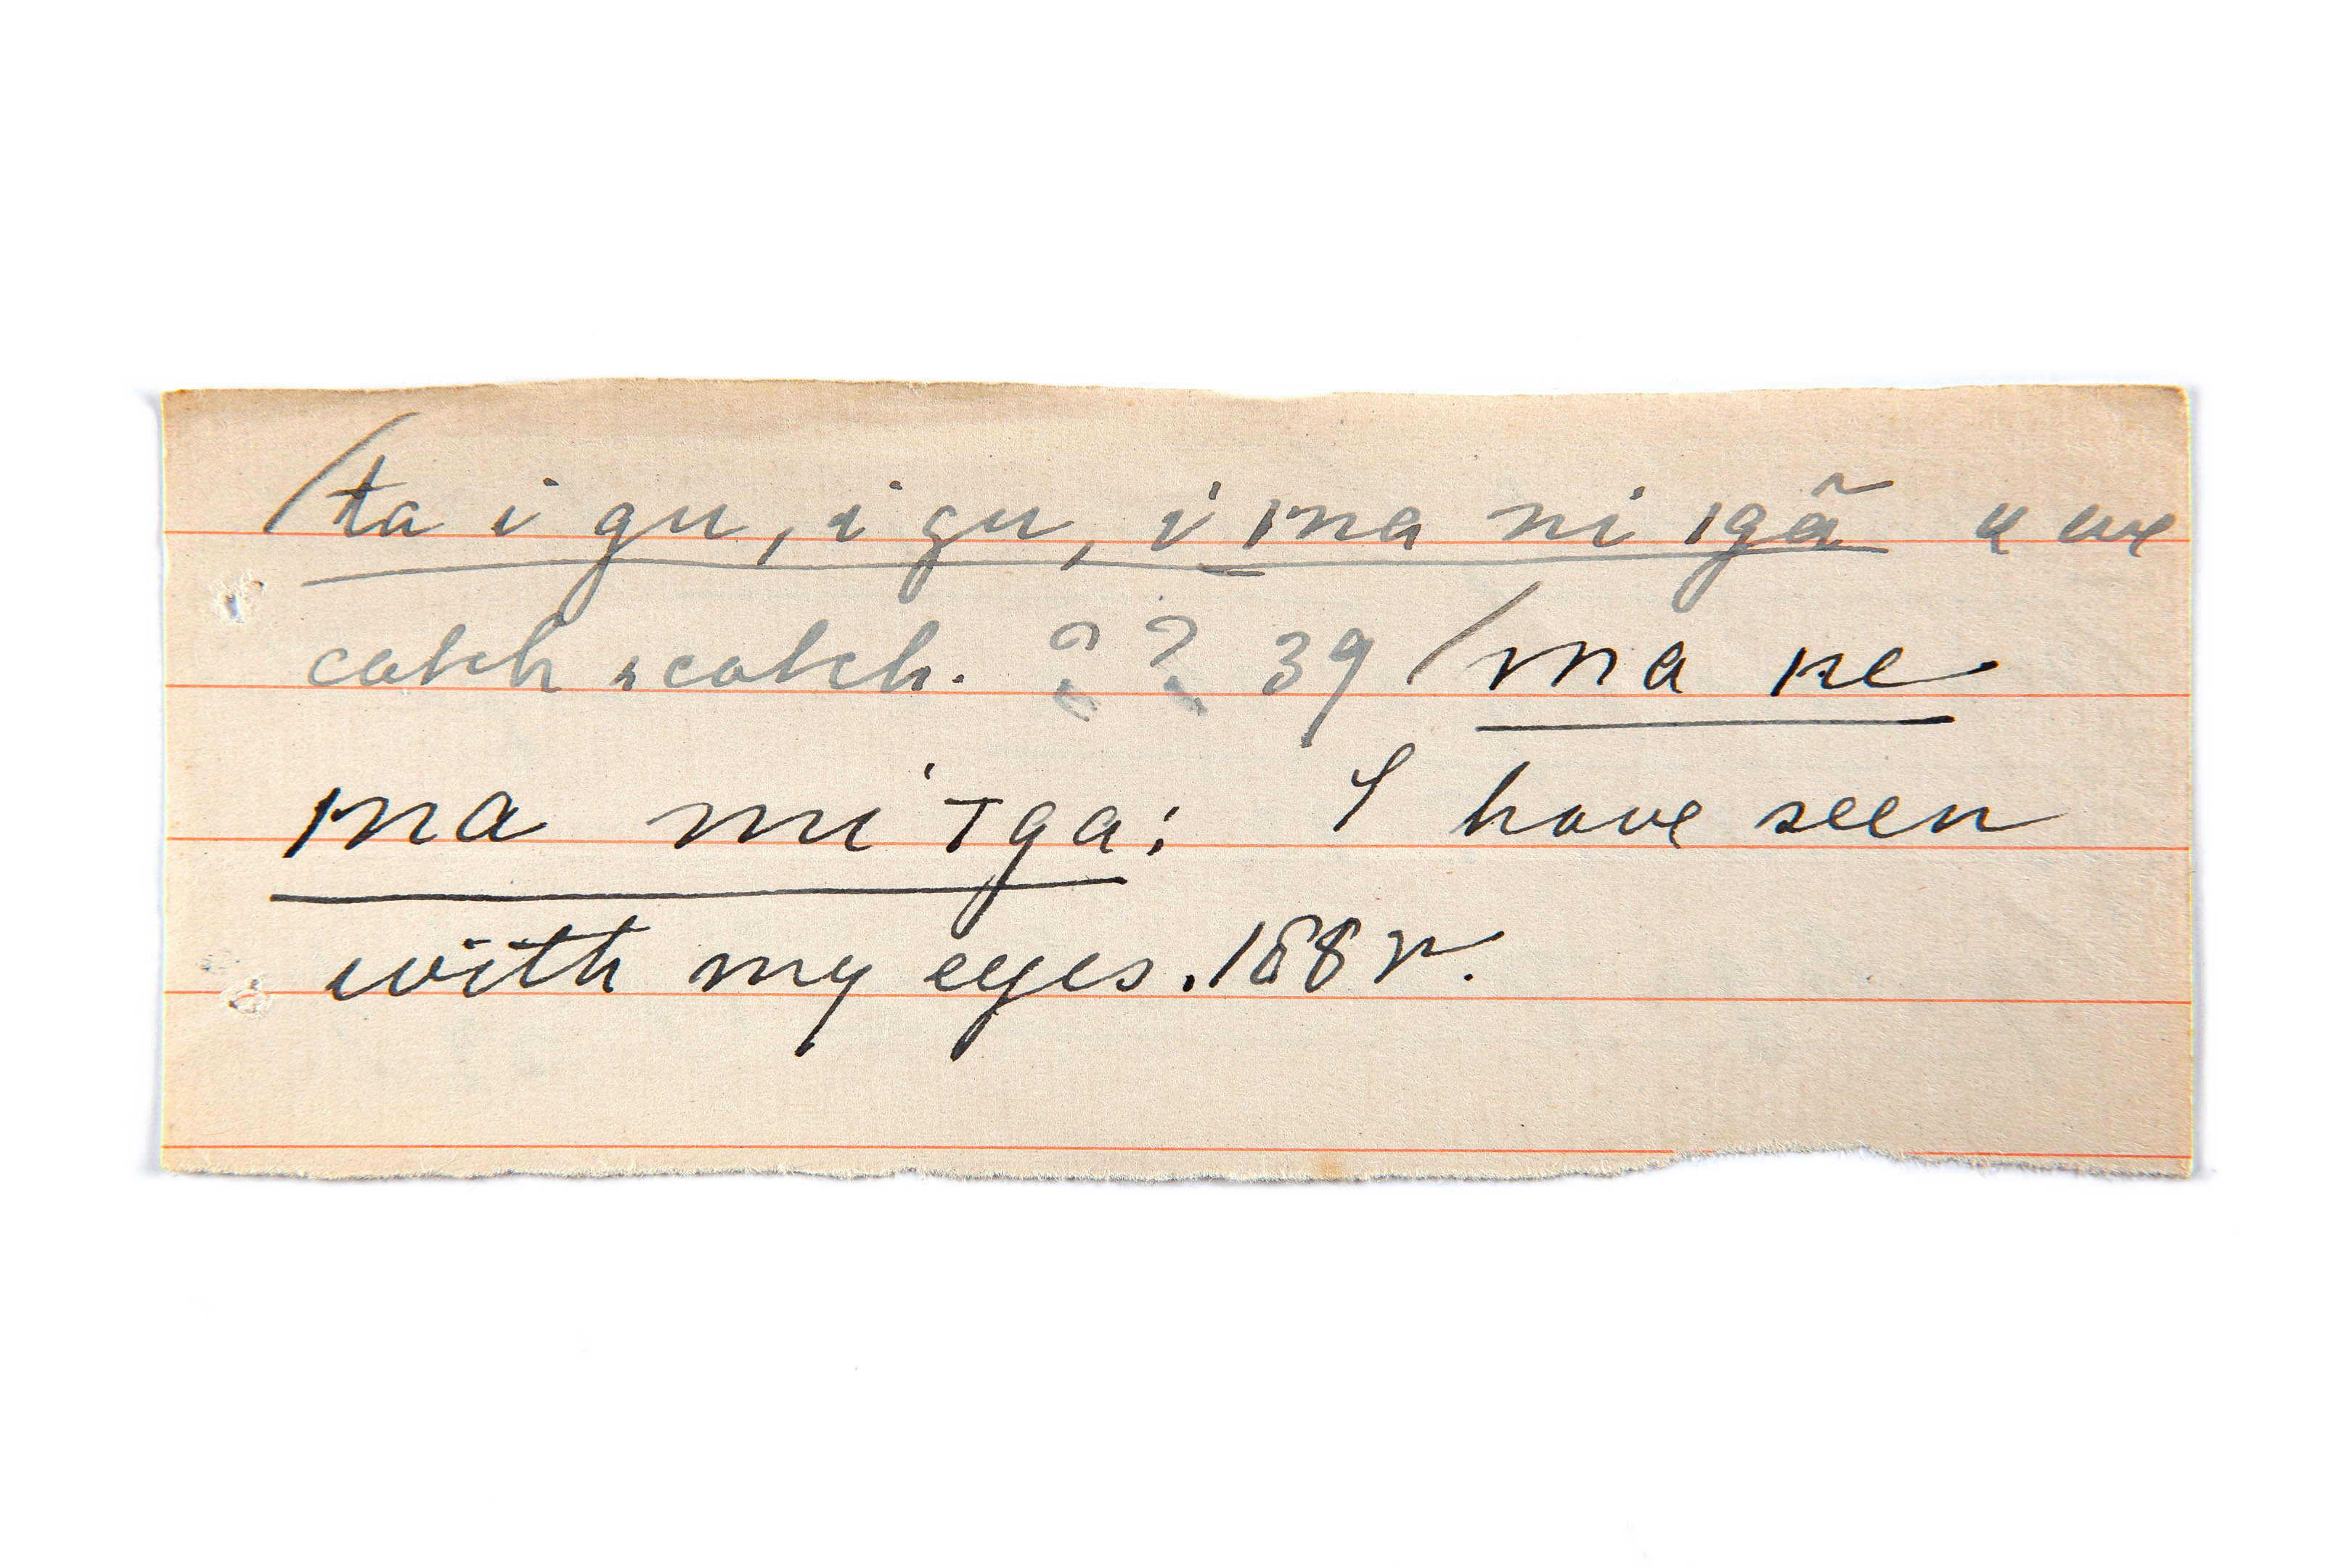 /ta i gu, i gu, i ma ni 1gã u we
catch, catch. ?? 39 /ma ne
ma mi Tga: I have seen
with my eyes. 188 r.